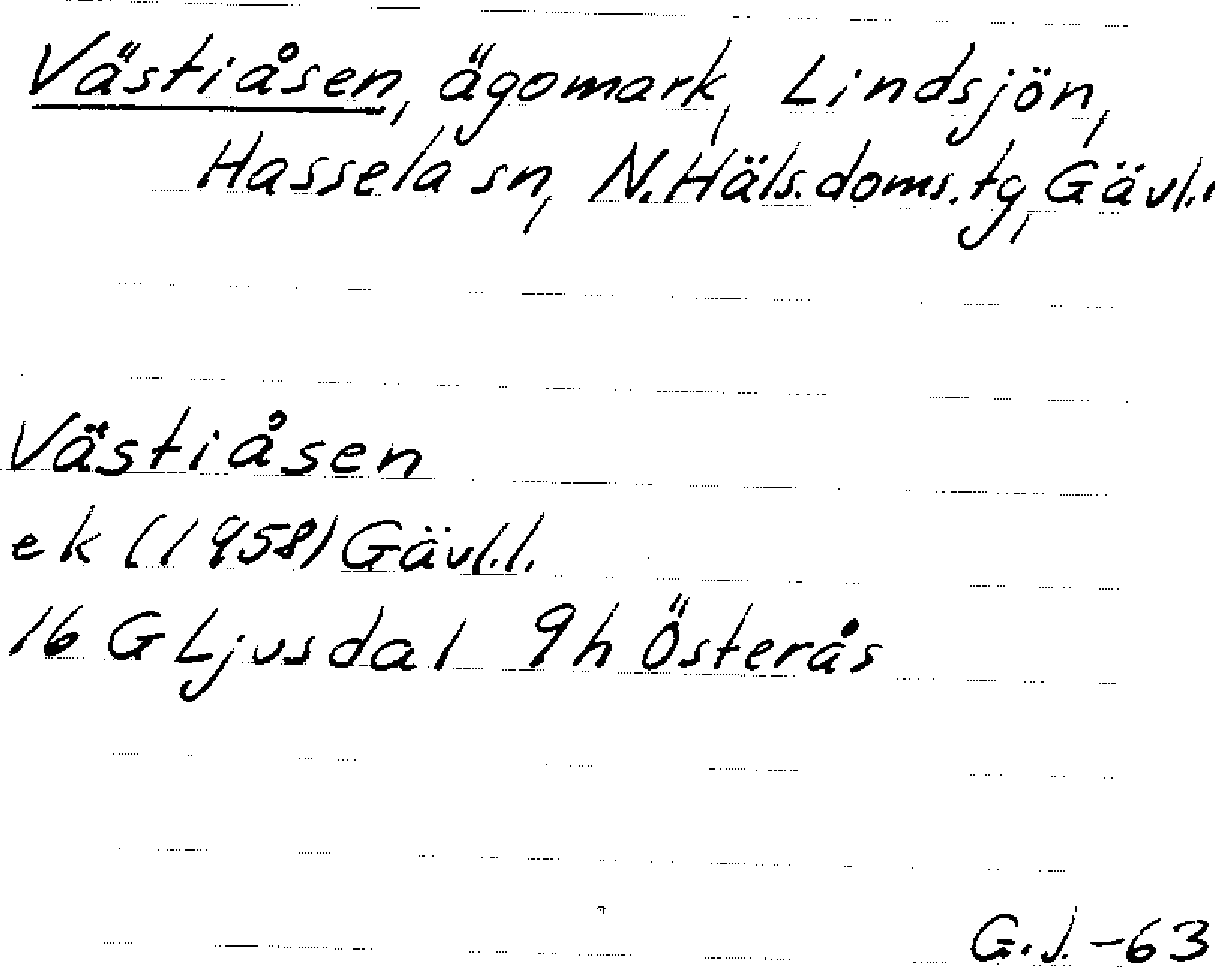 Västiåsen, ägomark, Lindsjön,
Hassela sn, N. Häls. doms. tg, Gävl.l.
Västiåsen
ek (1958) Gävl.l.
16 G Ljusdal 9h Österås
G.J. -63